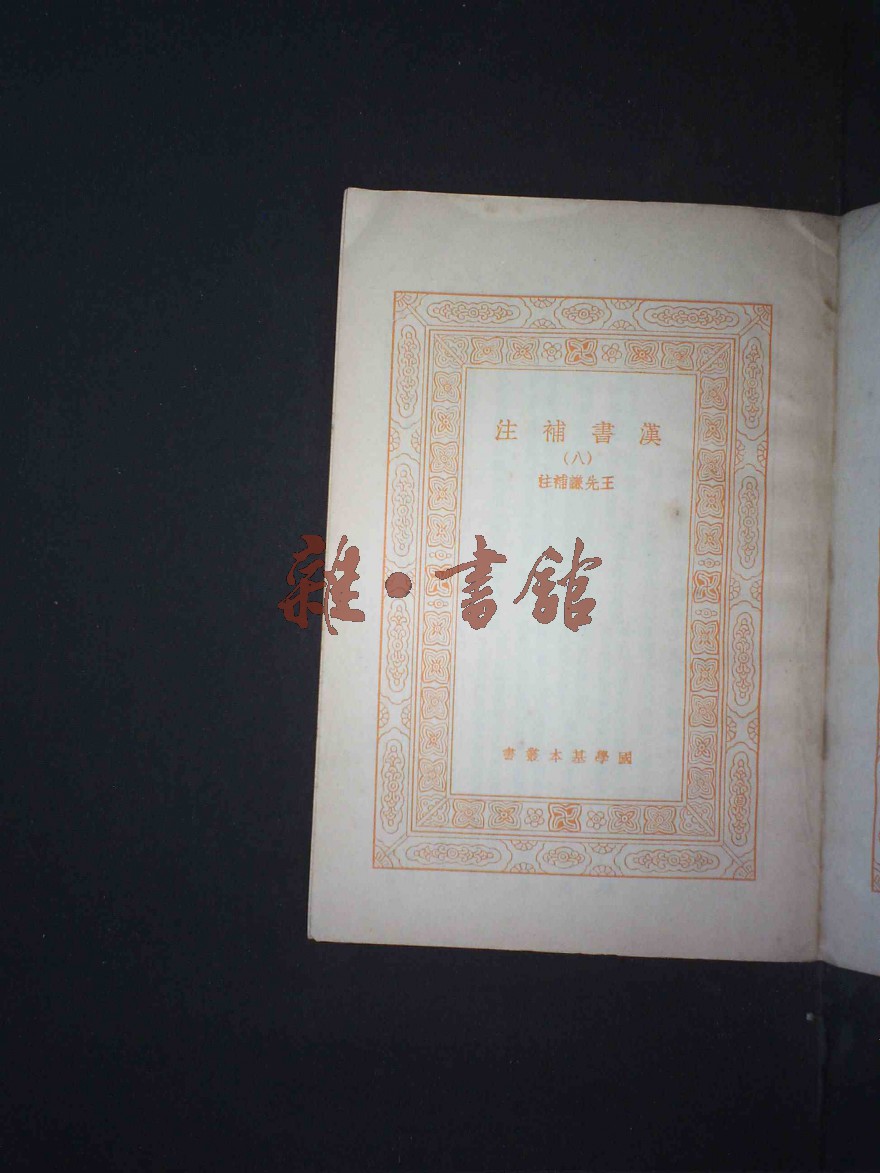 漢書補注
（八）
王先謙補注
雜·書館
國學基本叢書